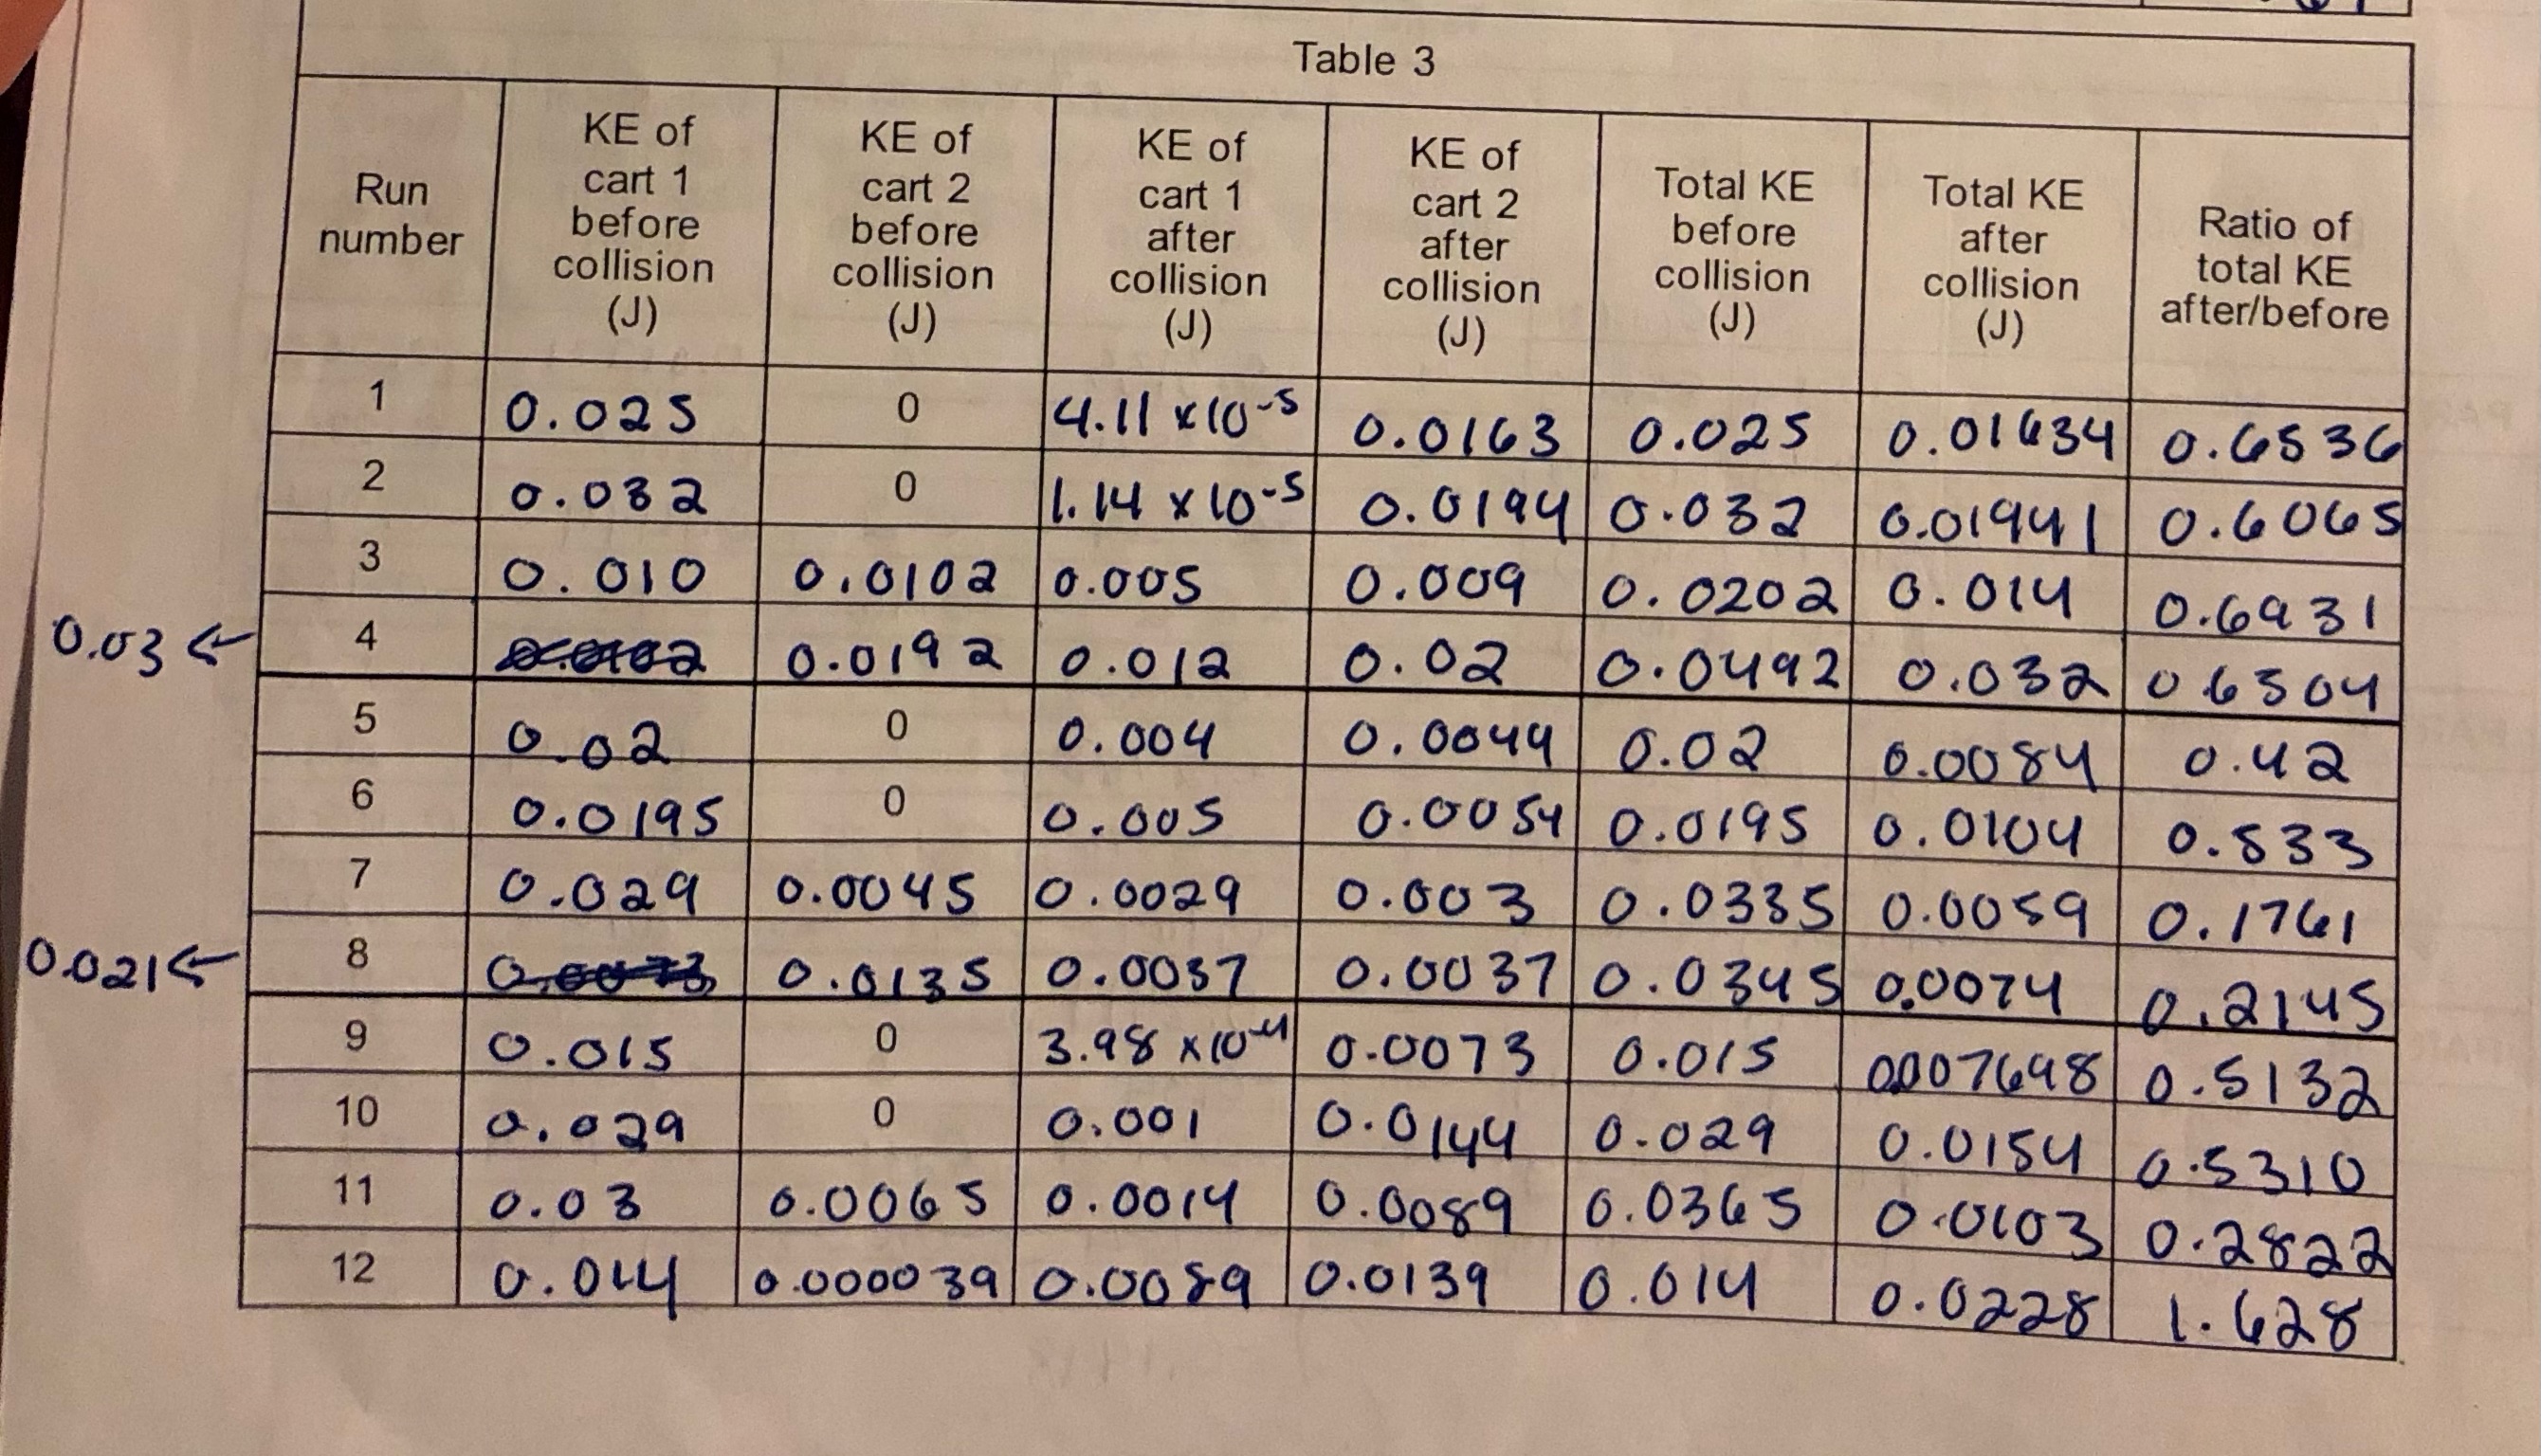 Table 3
Run number | KE of cart 1 before collision (J) | KE of cart 2 before collision (J) | KE of cart 1 after collision (J) | KE of cart 2 after collision (J) | Total KE before collision (J) | Total KE after collision (J) | Ratio of total KE after/before
1 | 0.025 | 0 | 4.11 x10^-5 | 0.0163 | 0.025 | 0.01634 | 0.6536
2 | 0.032 | 0 | 1.14 x10^-5 | 0.0194 | 0.032 | 0.01941 | 0.6065
3 | 0.010 | 0.0102 | 0.005 | 0.009 | 0.0202 | 0.014 | 0.6931
0.03 ← 4 | 0.0192 | 0.012 | 0.02 | 0.0492 | 0.032 | 0.6504
5 | 0.02 | 0 | 0.004 | 0.0044 | 0.02 | 0.0084 | 0.42
6 | 0.0195 | 0 | 0.005 | 0.0054 | 0.0195 | 0.0104 | 0.533
7 | 0.029 | 0.0045 | 0.0029 | 0.003 | 0.0335 | 0.0059 | 0.1761
0.021 ← 8 | 0.0135 | 0.0037 | 0.0037 | 0.0345 | 0.0074 | 0.2145
9 | 0.015 | 0 | 3.98 x10^-4 | 0.0073 | 0.015 | 0.007698 | 0.5132
10 | 0.029 | 0 | 0.001 | 0.0144 | 0.029 | 0.0154 | 0.5310
11 | 0.03 | 0.0065 | 0.0014 | 0.0089 | 0.0365 | 0.0103 | 0.2822
12 | 0.014 | 0.000039 | 0.0089 | 0.0139 | 0.014 | 0.0228 | 1.628